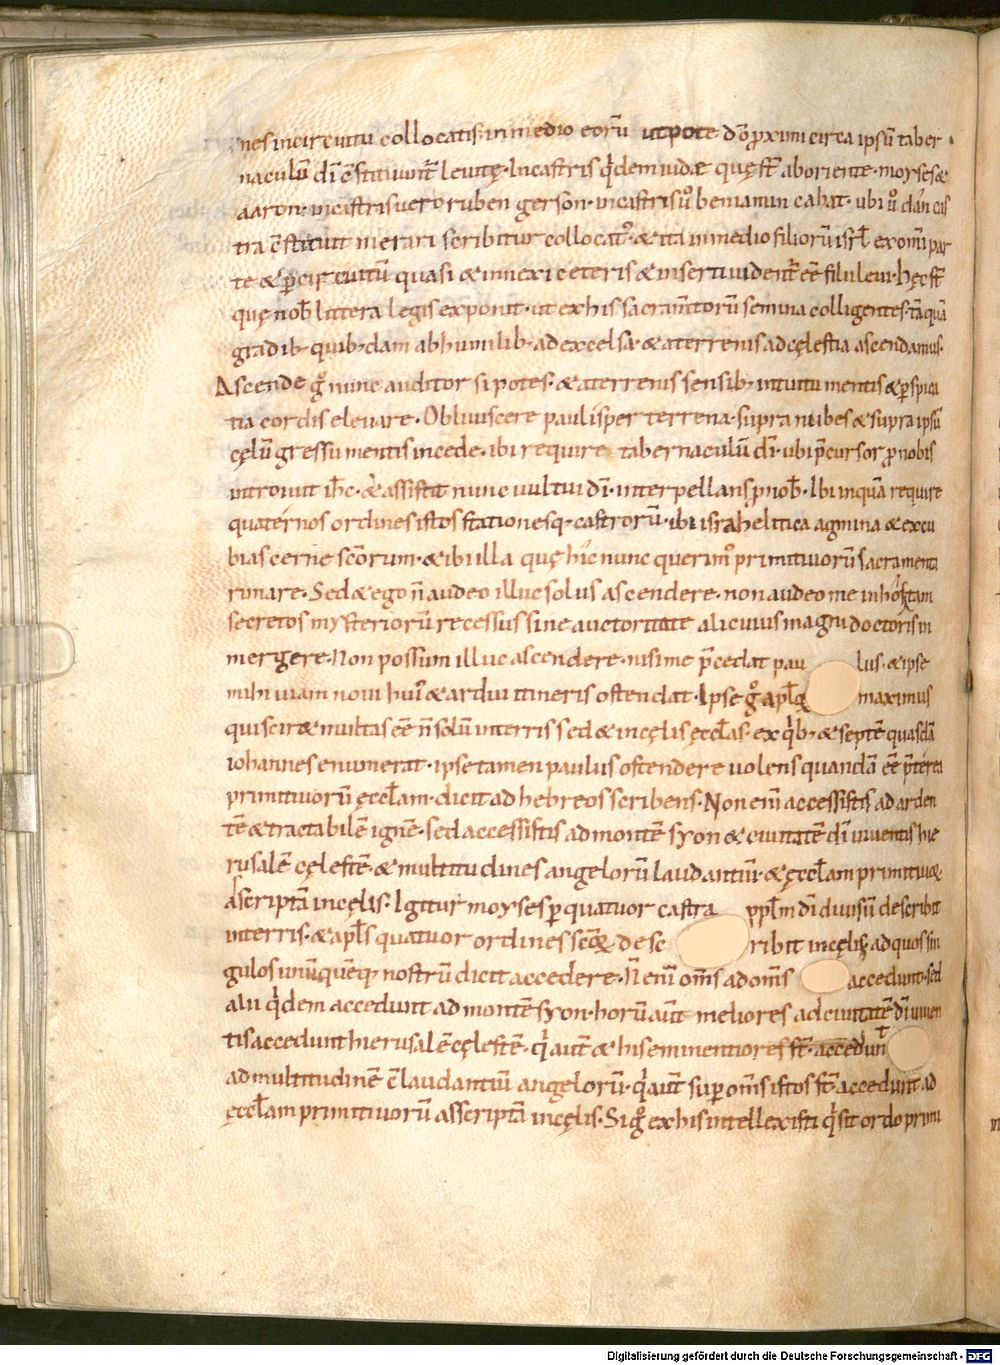 nes incircuitu collocatis. in medio eorū utpote dō proximi circa ipsū taber
naculū dī c̄stituunt̄ leuitę. Incastris q̇dem iudae quę st̄ aboriente. moyses &
aaron. incastris uero ruben gerson. incastris u͛o beniamin cahat. ubi u͛o dan cas
tra c̄stituit merari scribitur collocat᷒. & ita in medio filiorū isrl̄ exomī par
te & ꝑcircuitū quasi & innexi ceteris & inserti uident̄ ēē filii leui. hęc st̄
quę nob̄ littera legis exponit. ut ex his sacram̄torū semina colligentes. tāquā
gradib; quib;dam ab humilib; ad excelsa. & a terrenis ad cęlestia ascendamus.
Ascende g͛ nunc auditor si potes. & a terrenis sensib; intuitu mentis & ꝑspica
tia cordis eleuare. Obliuiscere paulisper terrena. supra nubes & supra ipsū
cęlū gressu mentis incede. ibi require tabernaculū dī. ubi p̄cursor ꝓ nobis
introiuit ih̄c. & assistit nunc uultui dī. interpellans ꝓ nob̄. Ibi inquā require
quaternos ordines istos stationesq; castrorū. ibi israhelitica agmina & excu
bias cerne sc̄orum. & ibi illa quę hic nunc querim᷒ primitiuorū sacramenta
rimare. Sed & ego n̄ audeo illuc solus ascendere. non audeo me in hos tam
secretos mysteriorū recessus sine auctoritate alicuius magni doctoris in
mergere. Non possum illuc ascendere. nisi me p̄cedat pau lus. & ipse
mihi uiam noui hui᷒ & ardui itineris ostendat. Ipse g͛ apl̄oꝝ maximus
qui scir& multas ēē n̄ solū interris sed & incęlis ęccl̄as. ex q̇b; & septē quasdā
iohannes enumerat. ipse tamen paulus ostendere uolens quandā ēē p̄terea
primitiuorū ęccl̄am. dicit ad hebreos scribens. Non enī accessistis ad arden
tē & tractabilē ignē. sed accessistis ad montē syon & ciuitatē dī uiuentis hie
rusalē cęlestē. & multitudines angelorū laudantiū. & ęccl̄am primitiuoꝝ
ascriptā incęlis. Igitur moyses ꝑ quatuor castra ppl̄m dī diuisū describit
interris. & apl̄s quatuor ordines sc̄oꝝ desc ribit incęlis. ad quos sin
gulos unūquēq; nostrū dicit accedere. N̄ enī om̄s ad om̄s accedunt. sed
alii q̇dem accedunt ad montē syon. horū aūt meliores ad ciuitatē dī uiuen
tis accedunt hierusalē cęlestē. q̇ autē & his eminentiores st̄. accedunt
ad multitudinē c̄laudantiū angelorū. q̇ aūt sup om̄s istos st̄ accedunt ad
ęccl̄am primitiuorū asscriptā incęlis. Si g͛ ex his intellexisti q̇ sit ordo primi
Digitalisierung gefördert durch die Deutsche Forschungsgemeinschaft - DFG